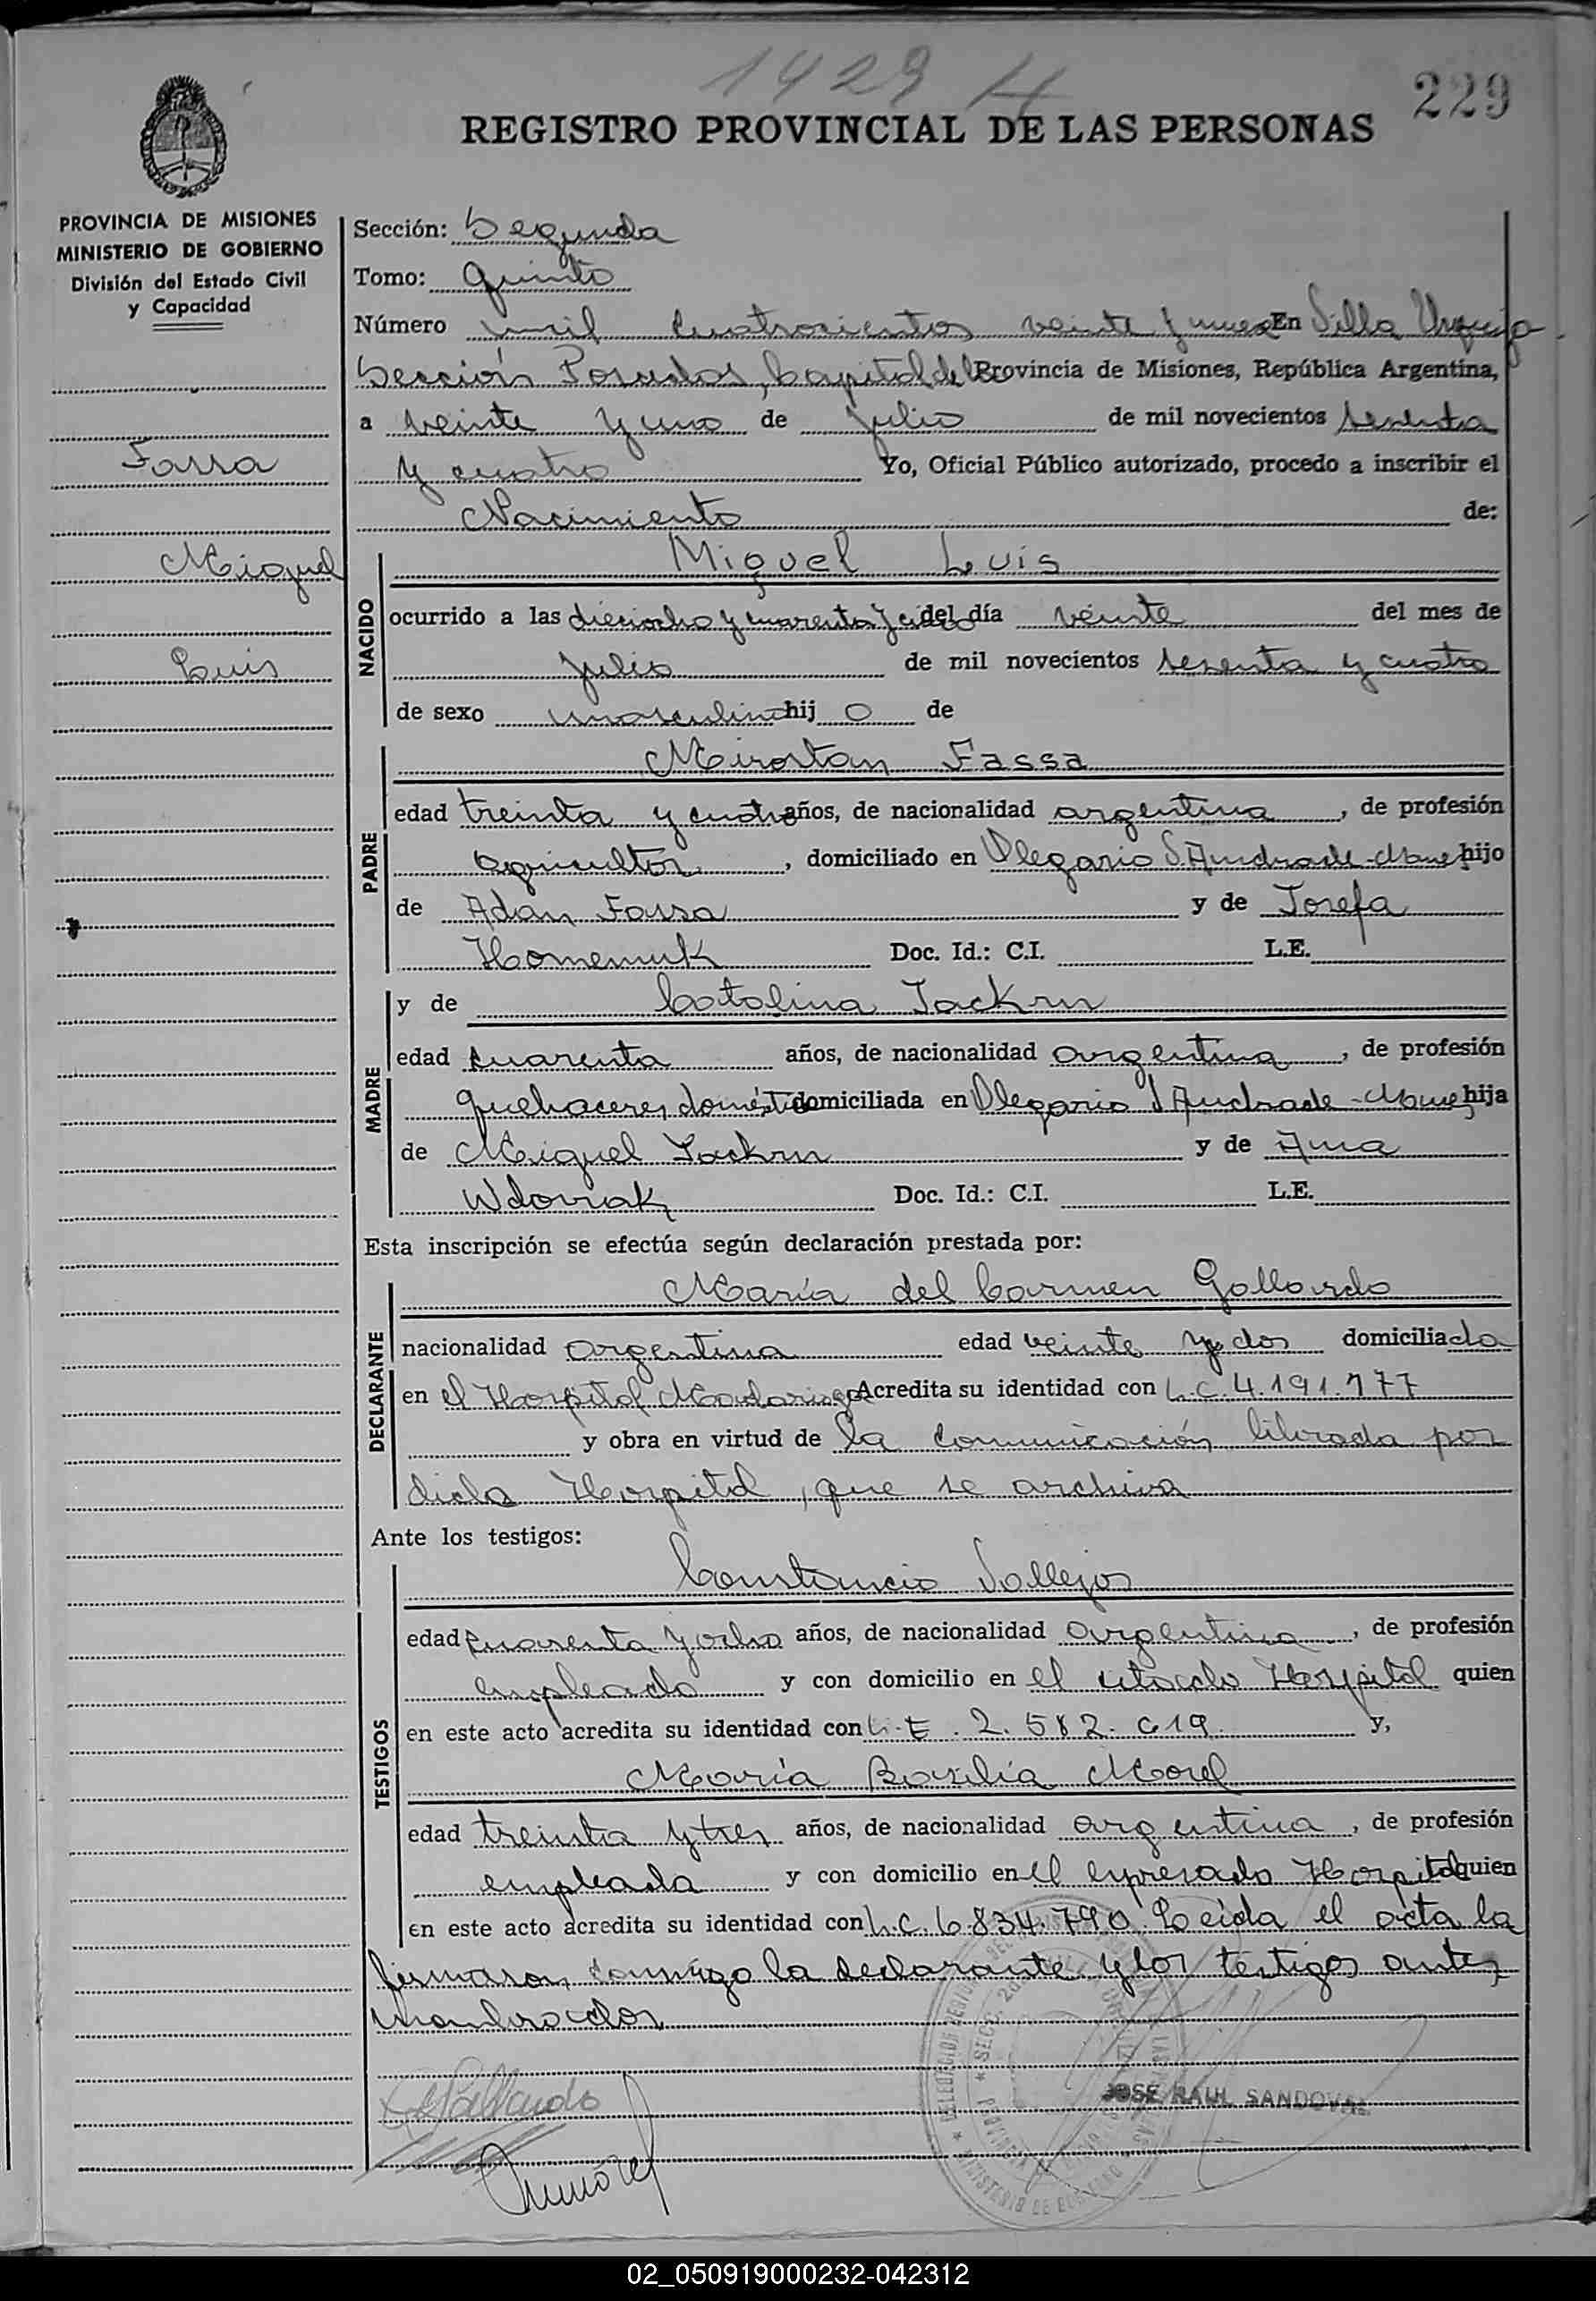 1429 H
229
REGISTRO PROVINCIAL DE LAS PERSONAS
PROVINCIA DE MISIONES
MINISTERIO DE GOBIERNO
División del Estado Civil
y Capacidad
Fassa
Miguel
Luis
Sección: Segunda
Tomo: Quinto
Número mil cuatrocientos veinte y nueve En Villa Urquiza
Sección Posadas, Capital de la Provincia de Misiones, República Argentina,
a veinte y uno de julio de mil novecientos sesenta
y cuatro Yo, Oficial Público autorizado, procedo a inscribir el
Nacimiento de:
NACIDO
Miguel Luis
ocurrido a las dieciocho y cuarenta y cinco del día veinte del mes de
julio de mil novecientos sesenta y cuatro
de sexo masculino hijo de
PADRE
Fassa
edad treinta y cuatro años, de nacionalidad argentina, de profesión
agricultor, domiciliado en Olegario V. Andrade-Mnes hijo
de Adan Fassa y de Josefa
Homeniuk Doc. Id.: C.I. L.E.
MADRE
y de Catalina
edad cuarenta años, de nacionalidad argentina, de profesión
quehaceres domésticos domiciliada en Olegario V Andrade-Mnes hija
de Miguel y de Ana
Wdoviak Doc. Id.: C.I. L.E.
Esta inscripción se efectúa según declaración prestada por:
DECLARANTE
María del Carmen Gallardo
nacionalidad argentina edad veinte y dos domiciliada
en el Hospital Madariaga Acredita su identidad con L.C. 4.191.777
y obra en virtud de la comunicación librada por
dicho Hospital, que se archiva
Ante los testigos:
TESTIGOS
Constancio Vallejos
edad cuarenta y ocho años, de nacionalidad argentina, de profesión
empleado y con domicilio en el citado Hospital quien
en este acto acredita su identidad con L.E. 2.582.619 y,
María Basilia Morel
edad treinta y tres años, de nacionalidad argentina, de profesión
empleada y con domicilio en el expresado Hospital quien
en este acto acredita su identidad con L.C. 6.834.790. Leída el acta la
firmaron conmigo la declarante y los testigos antes
nombrados
Gallardo
JOSE RAUL SANDOVAL
02_050919000232-042312